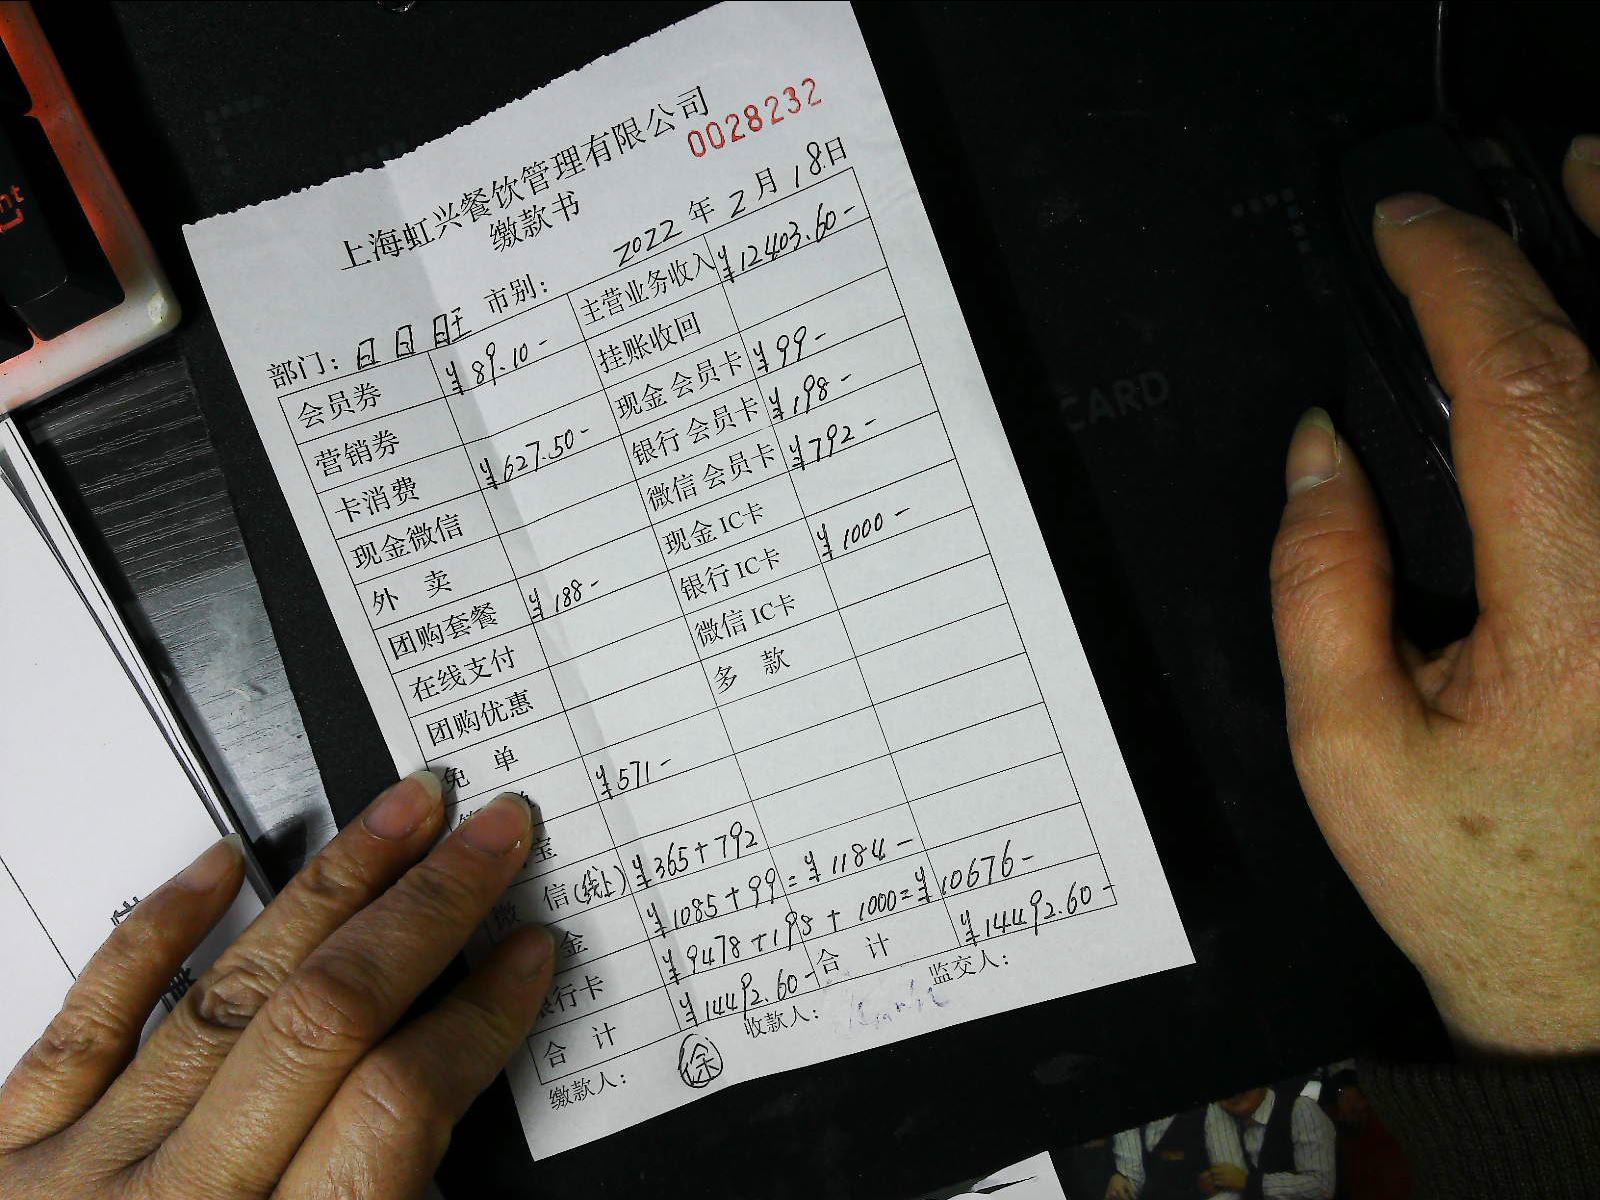 上海虹兴餐饮管理有限公司
0028232
缴款书
部门：日日旺 市别： 2022年2月18日
会员券 ¥89.10- 主营业务收入 ¥12403.60-
营销券 挂账收回
卡消费 ¥627.50- 现金会员卡 ¥99-
现金微信 银行会员卡 ¥198-
外卖 微信会员卡 ¥792-
团购套餐 ¥188- 现金IC卡
在线支付 银行IC卡 ¥1000-
团购优惠 微信IC卡
免单 多款
¥571-
宝
微信(线上) ¥365+792
金 ¥1085+99=¥1184-
银行卡 ¥9478+198+1000=¥10676-
合计 ¥14492.60- 合计 ¥14492.60-
缴款人： 徐 收款人： 监交人：
CARD
nt